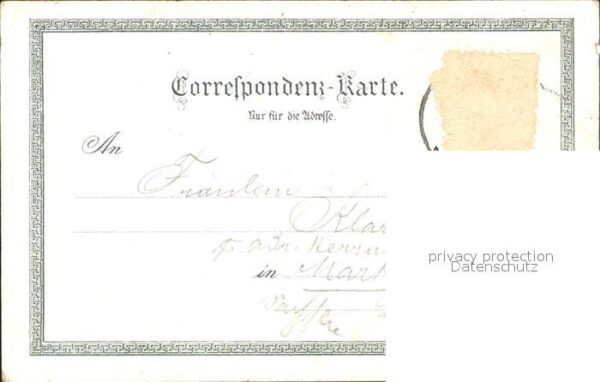 Correspondenz-Karte.
Nur für die Adresse.
An
Fräulein
Klar
p. adr. Herrn
in Mark
privacy protection
Datenschutz